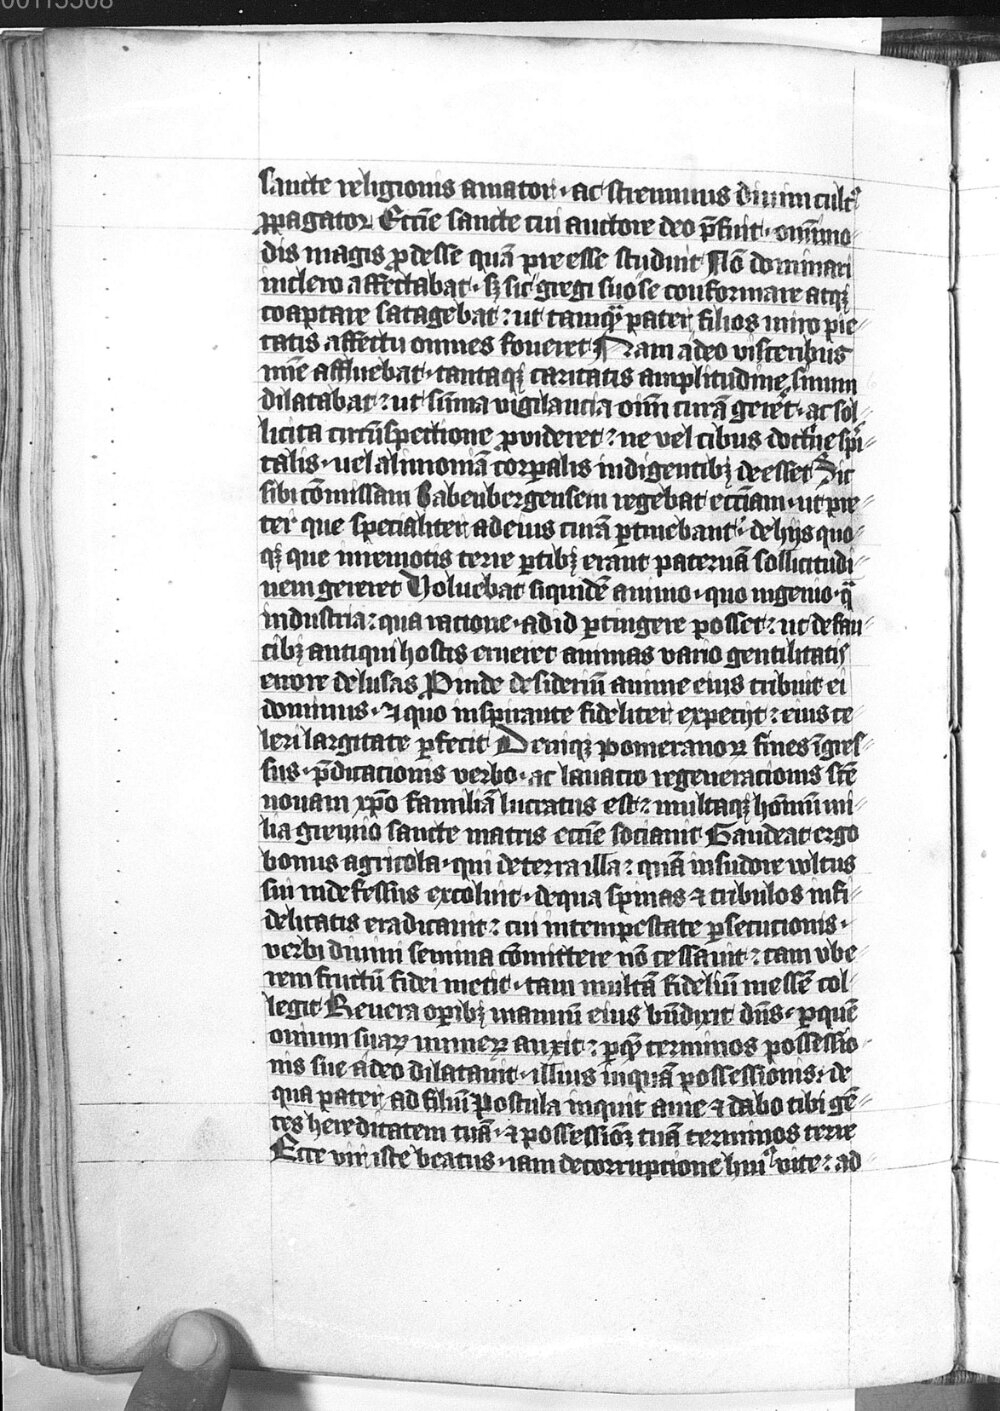 00115308
sancte religionis amator · ac strennuus diuini cultꝰ
ꝓpagator Eccīe sancte cui auctore deo p̄fuit · om̄imo⸗
dis magis ꝓdesse quā preesse studuit Nō dominari
inclero affectabat · sꝫ sic gregi suo se conformare atqꝫ
coaptare satagebat : ut tamqᷓ pater filios miro pie⸗
tatis affectu omnes foueret Nam adeo visceribus
mīe affluebat · tantaqꝫ caritatis amplitudine sinum
dilatabat : ut sūma vigilancia oīm curā gereret · ac sol⸗
licita circūspectione ꝓuideret : ne vel cibus doctͥne spūi⸗
talis · uel alimoniā corꝑalis indigentibꝫ deesset Sic
sibi cōmissam Babenbergensem regebat ecciam · ut pre⸗
ter que specialiter ad eius curā ꝑtinebant · de hijs quo⸗
qꝫ que inremotis terre ꝑtibꝫ erant paternā sollicitudi⸗
nem gereret Voluebat siquidē animo · quo ingenio · qᷓ
industria : qua racione · ad id ꝑtingere posset : ut de fau⸗
cibꝫ antiqui hostis erueret animas vario gentilitatis
errore delusas Proinde desideriū anime eius tribuit ei
dominus · ⁊ quo inspirante fideliter expecijt : eius ce⸗
leri largitate ꝑfecit Deniqꝫ pomeranoꝝ fines īgres⸗
sus · p̄dicacionis verbo · ac lauacro regeneracionis scē
nouam xp̄o familiā lucratus est : multaqꝫ hom̄inū mi⸗
lia gremio sancte matris eccīe sociauit Gaudeat ergo
bonus agricola · qui de terra illa : quā insudore vultus
sui indefessus excoluit · dequa spinas ⁊ tribulos infi⸗
delitatis eradicauit : cui intempestate ꝑsecucionis ·
verbi diuini semina cōmittere nō cessauit : tam vbe⸗
rem fructū fidei metit · tam multā fideliū messē col⸗
legit Reuera oꝑibꝫ manuū eius bn̄dixit dn̄s · ꝑ quē
ouium suaꝝ numeꝝ auxit : ꝑ qᷓ terminos possessio⸗
nis sue adeo dilatauit · illius inquā possessionis : de
qua pater ad filiū Postula inquit a me ⁊ dabo tibi gē⸗
tes hereditatem tuā · ⁊ possessionē tuā terminos terre
Ecce vir iste beatus · iam decorrupcione huiꝰ vite : ad